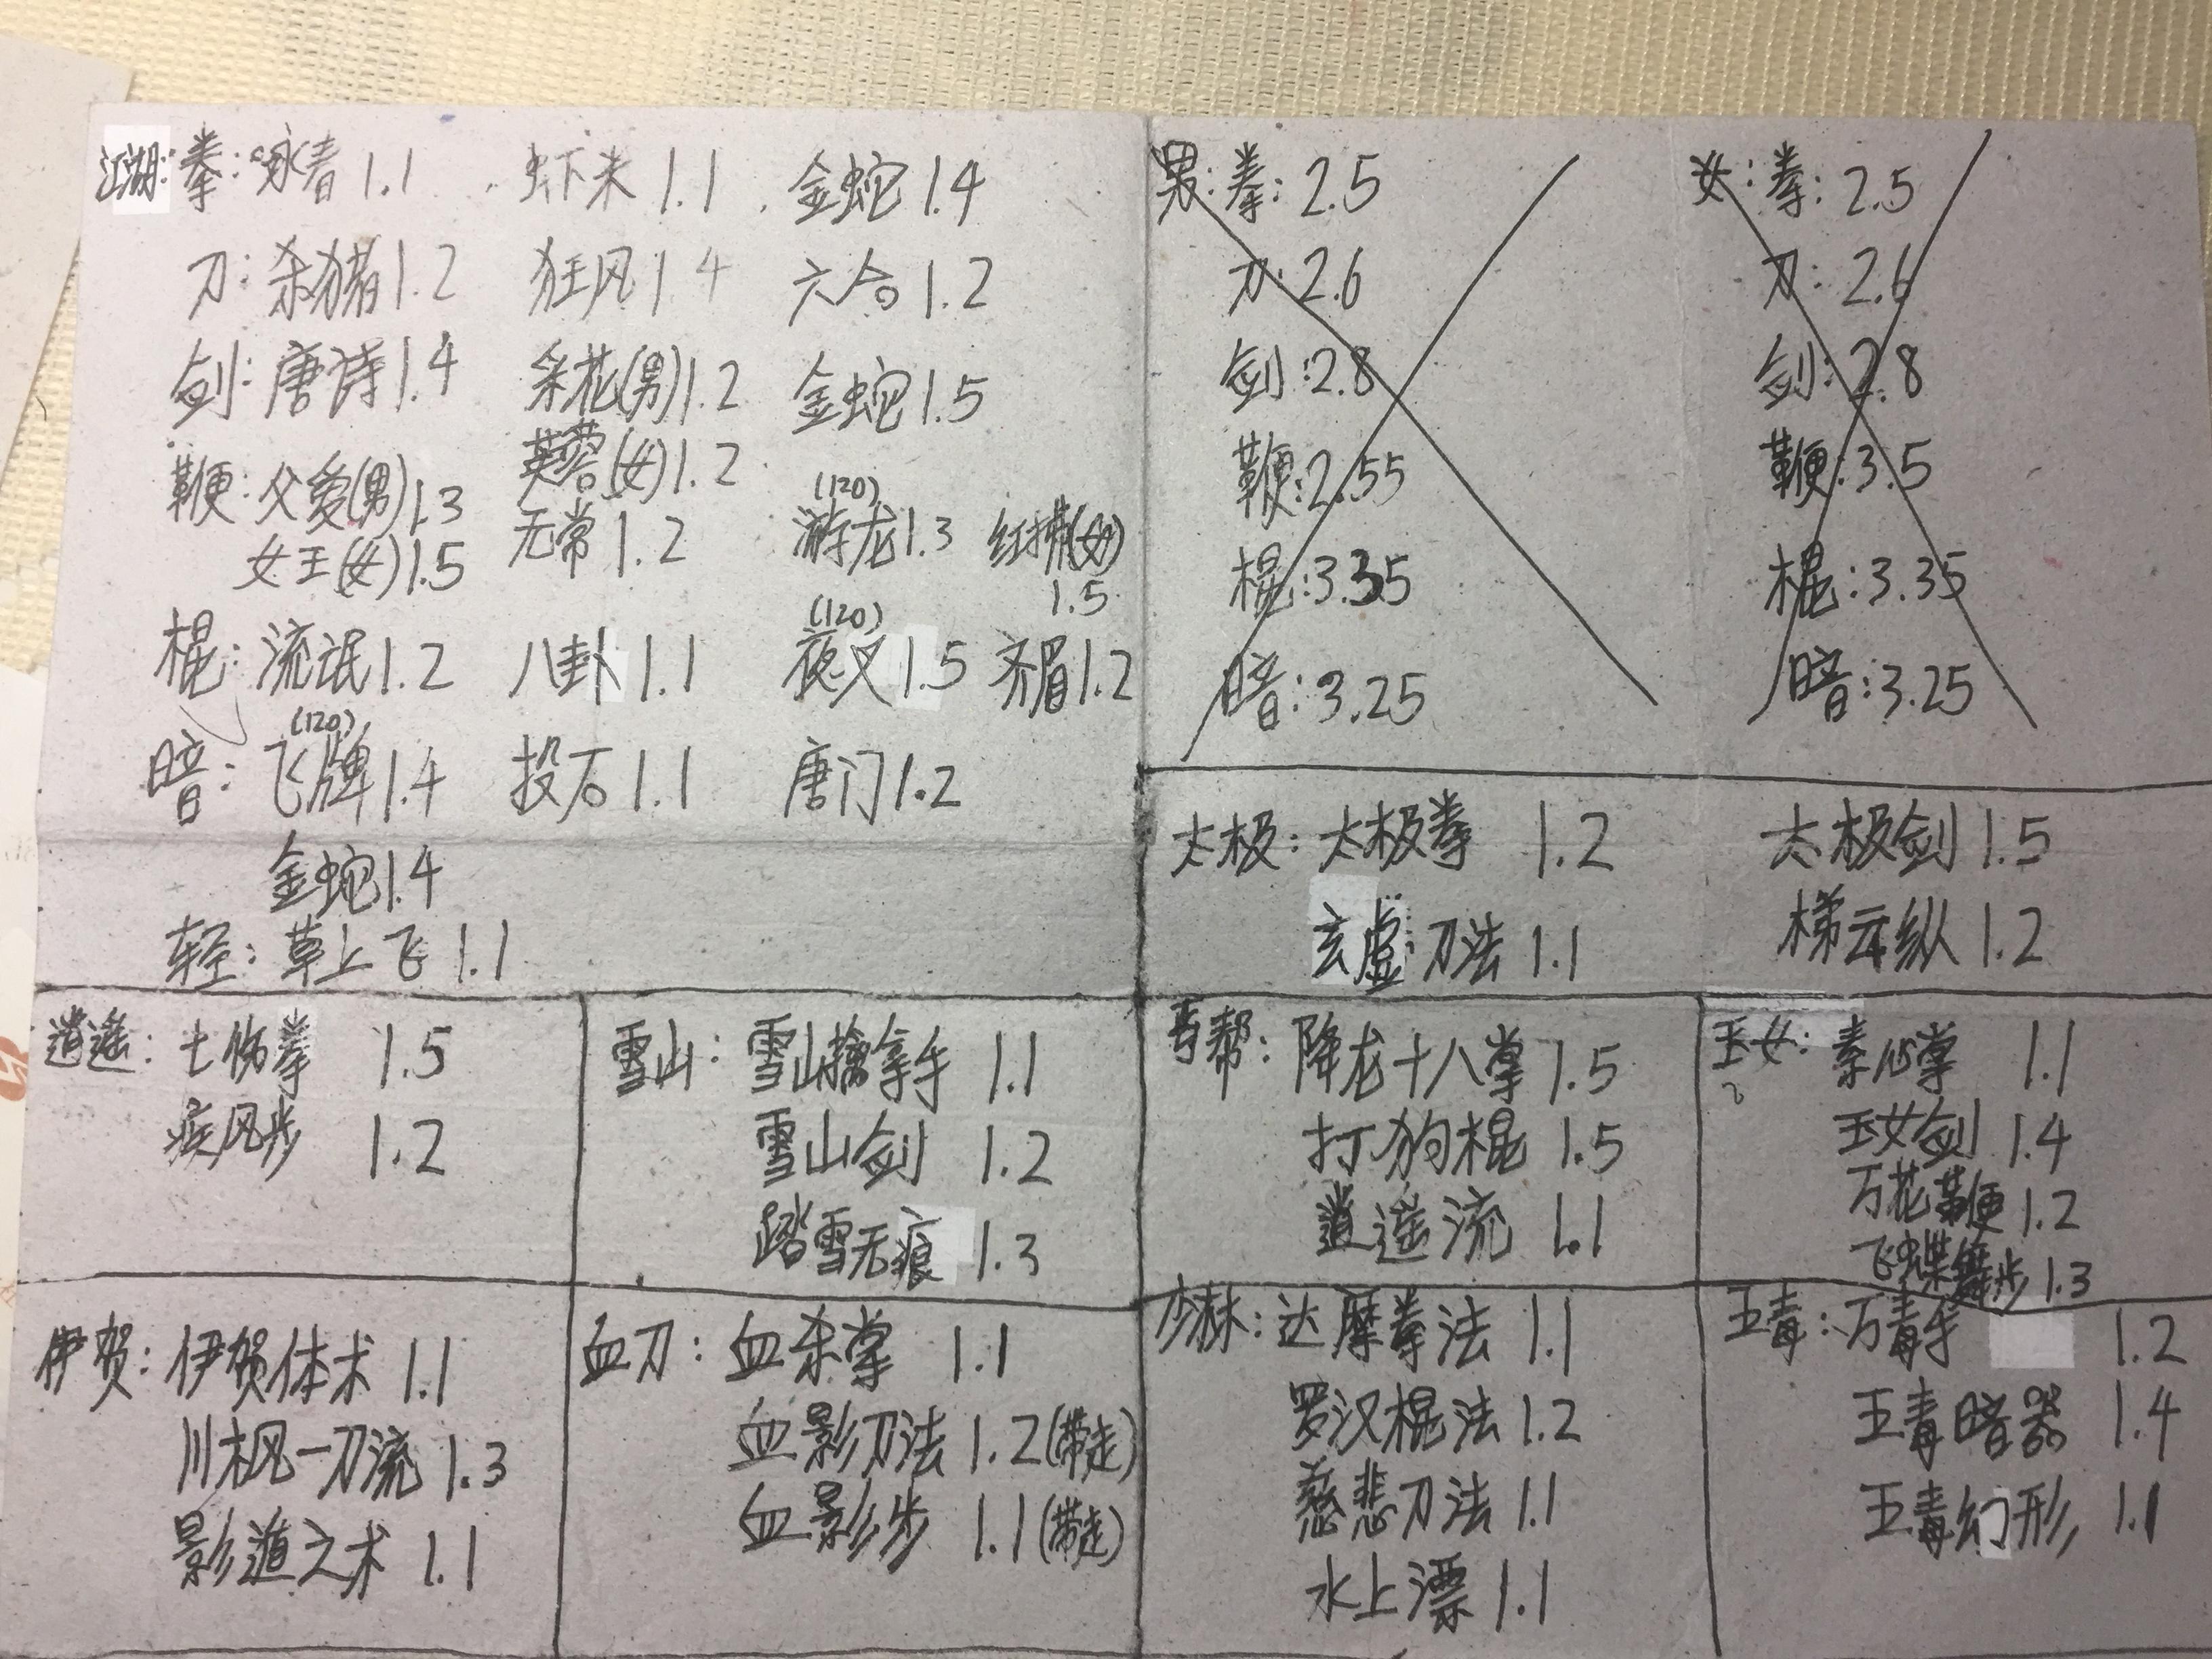 江湖: 拳: 咏春 1.1 虾米 1.1 金蛇 1.4
刀: 杀猪 1.2 狂风 1.4 六合 1.2
剑: 唐诗 1.4 采花(男) 1.2 金蛇 1.5
芙蓉(女) 1.2
鞭: 父爱(男) 1.3 无常 1.2 (120) 游龙 1.3 红拂(女) 1.5
女王(女) 1.5
棍: 流氓 1.2 八卦 1.1 (120) 夜叉 1.5 齐眉 1.2
暗: (120) 飞牌 1.4 投石 1.1 唐门 1.2
金蛇 1.4
轻: 草上飞 1.1
男: 拳: 2.5
刀: 2.6
剑: 2.8
鞭: 2.55
棍: 3.35
暗: 3.25
女: 拳: 2.5
刀: 2.6
剑: 2.8
鞭: 3.5
棍: 3.35
暗: 3.25
太极: 太极拳 1.2 太极剑 1.5
玄虚刀法 1.1 梯云纵 1.2
逍遥: 七伤拳 1.5
疾风步 1.2
雪山: 雪山擒拿手 1.1
雪山剑 1.2
踏雪无痕 1.3
丐帮: 降龙十八掌 1.5
打狗棍 1.5
逍遥流 1.1
玉女: 素心掌 1.1
玉女剑 1.4
万花鞭 1.2
飞蝶舞步 1.3
伊贺: 伊贺体术 1.1
川枫一刀流 1.3
影遁之术 1.1
血刀: 血杀掌 1.1
血影刀法 1.2(带走)
血影步 1.1(带走)
少林: 达摩拳法 1.1
罗汉棍法 1.2
慈悲刀法 1.1
水上漂 1.1
五毒: 万毒手 1.2
五毒暗器 1.4
五毒幻形 1.1